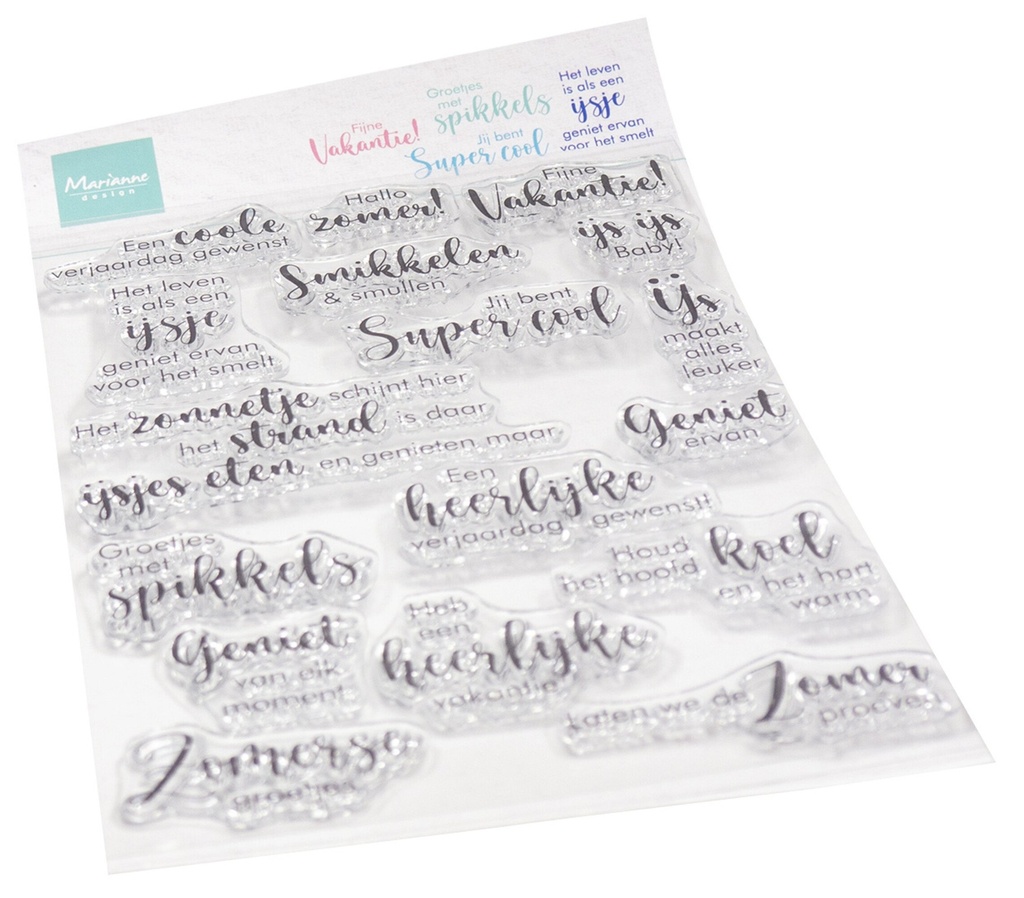 Marianne
design
Fijne
Vakantie!
Groetjes
met
spikkels
Jij bent
Super cool
Het leven
is als een
ijsje
geniet ervan
voor het smelt
Een coole
verjaardag gewenst
Hallo
zomer!
Fijne
Vakantie!
ijs ijs
Baby!
Smikkelen
& smullen
Het leven
is als een
ijsje
geniet ervan
voor het smelt
Jij bent
Super cool
ijs
maakt
alles
leuker
Het zonnetje schijnt hier
het strand is daar
ijsjes eten en genieten maar
Geniet
ervan
Een
heerlijke
verjaardag gewenst!
Groetjes
met
spikkels
Houd koel
het hoofd
en het hart
warm
Geniet
van elk
moment
Heb
een
heerlijke
vakantie
Laten we de Zomer
proeven
Zomerse
groetjes